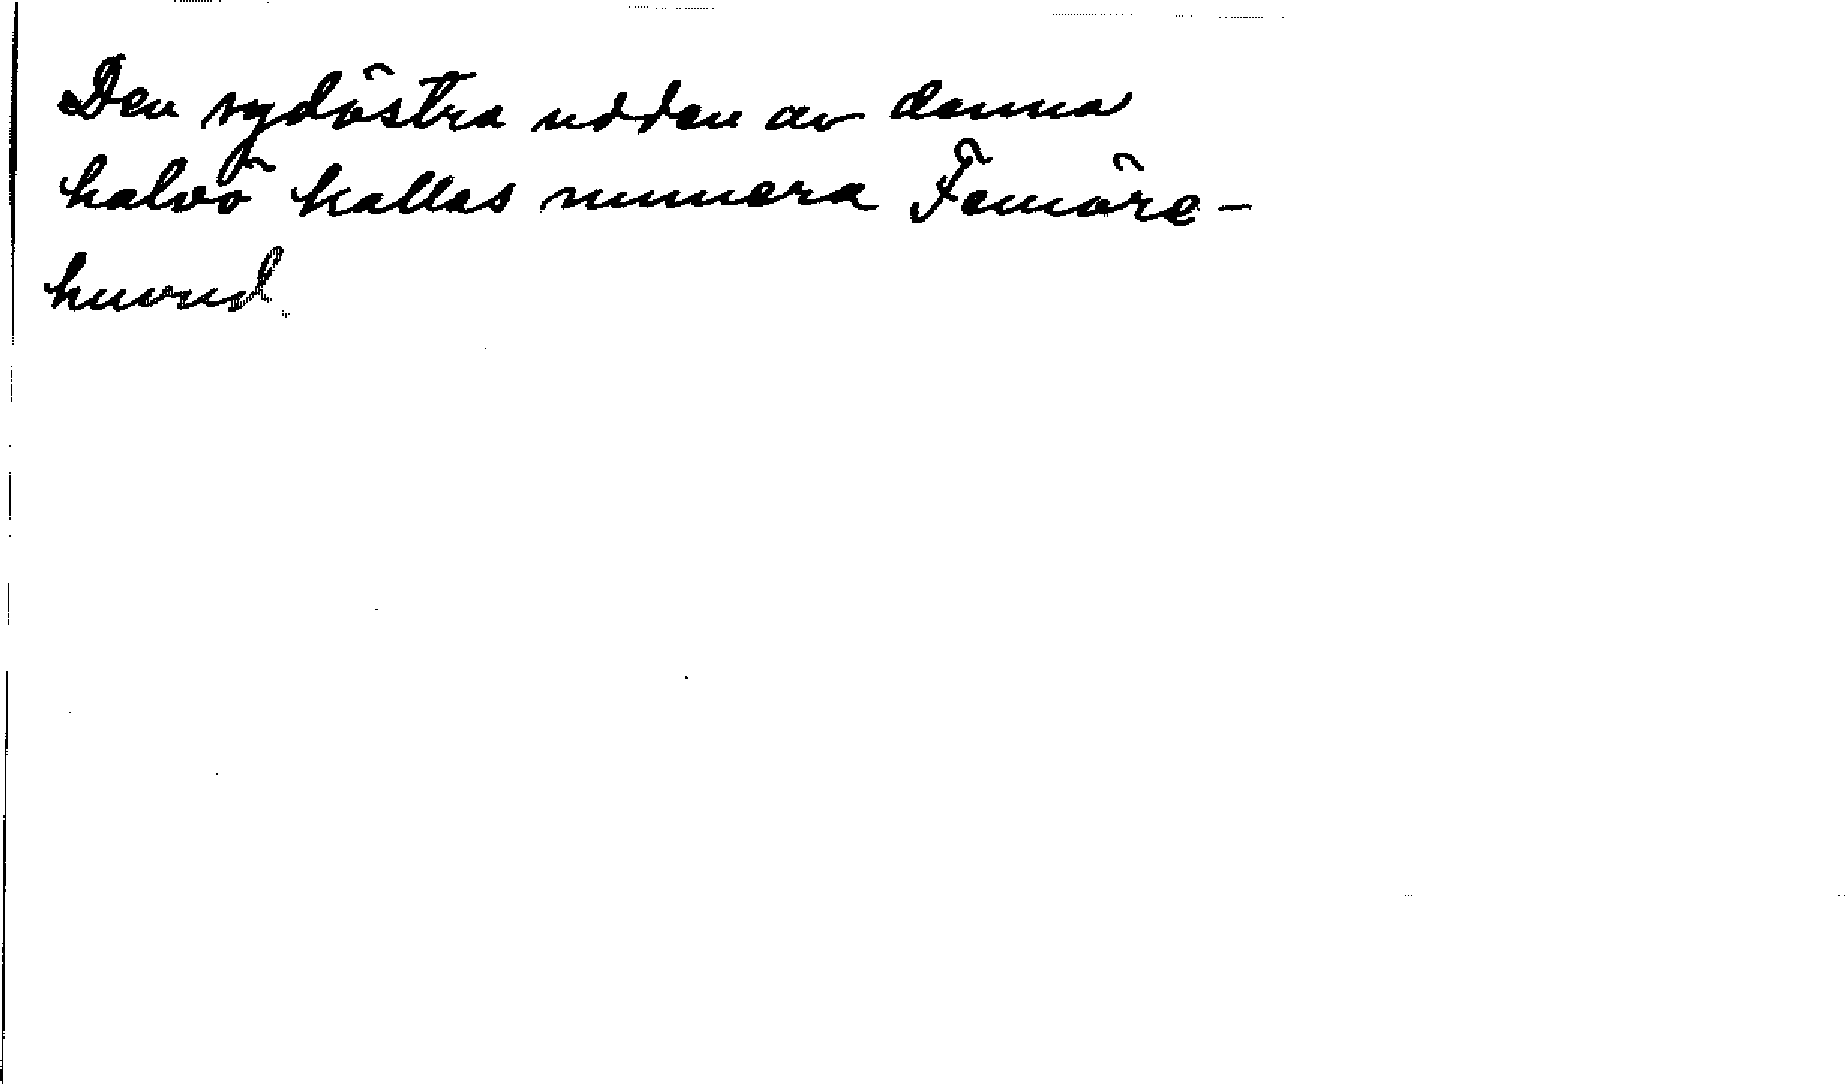 Den sydöstra udden av denna
halvö kallas numera Femöre-
huvud.